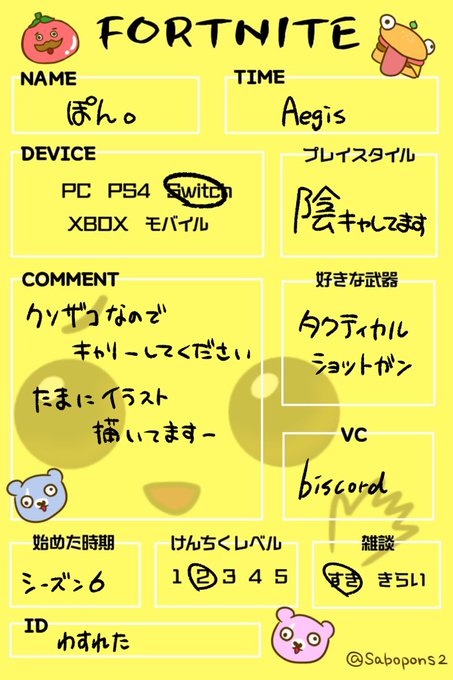 FORTNITE
NAME
ぽん。
TIME
Aegis
DEVICE
PC PS4 Switch
XBOX モバイル
プレイスタイル
陰キャしてます
COMMENT
クソザコなので
キャリーしてください
たまにイラスト
描いてますー
好きな武器
タクティカル
ショットガン
VC
biscord
始めた時期
シーズン6
けんちくレベル
1 2 3 4 5
雑談
すき きらい
ID
わすれた
@Sabopons2